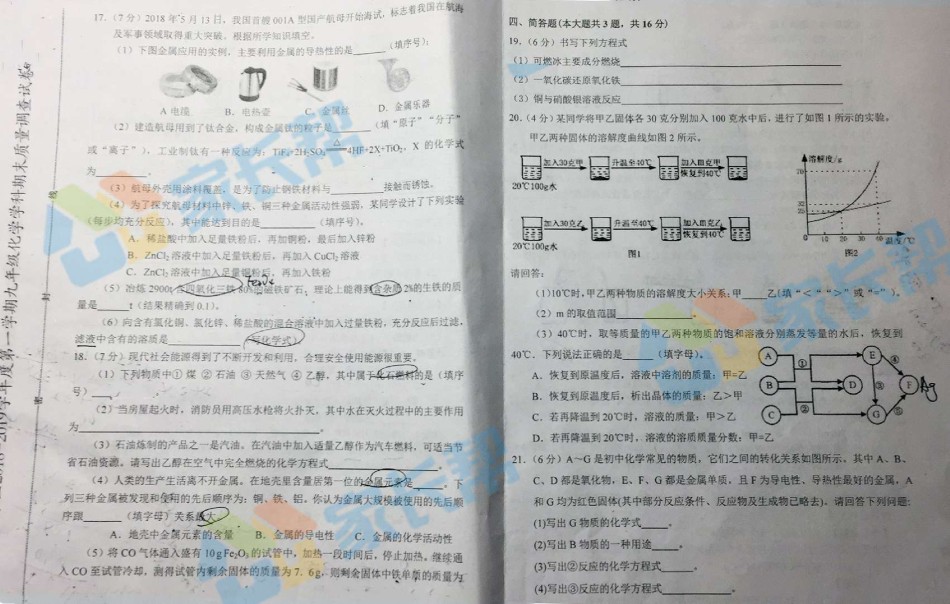 17.（7分）2018年5月13日，我国首艘001A型国产航母开始海试，标志着我国在航海
及军事领域取得重大突破。根据所学知识填空。
（1）下图金属应用的实例，主要利用金属的导热性的是______（填序号）；
A 电缆 B. 电热壶 C. 金属丝 D. 金属乐器
（2）建造航母用到了钛合金，构成金属钛的粒子是______（填“原子”“分子”
或“离子”），工业制钛有一种反应为：TiF₄+2H₂SO₄ △ 4HF+2X+TiO₂，X 的化学式
为______。
（3）航母外壳用涂料覆盖，是为了防止钢铁材料与______接触而锈蚀。
（4）为了探究航母材料中锌、铁、铜三种金属活动性强弱，某同学设计了下列实验
（每步均充分反应），其中能达到目的是______（填序号）。
A、稀盐酸中加入足量铁粉后，再加铜粉，最后加入锌粉
B、ZnCl₂溶液中加入足量铁粉后，再加入CuCl₂溶液
C、ZnCl₂溶液中加入足量铜粉后，再加入铁粉
（5）冶炼2900t含四氧化三铁80%的磁铁矿石，理论上能得到含杂质2%的生铁的质
量是______t（结果精确到0.1）。
（6）向含有氯化铜、氯化锌、稀盐酸的混合溶液中加入过量铁粉，充分反应后过滤，
滤液中含有的溶质是______（写化学式）
18.（7分）现代社会能源得到了不断开发和利用，合理安全使用能源很重要。
（1）下列物质中① 煤 ② 石油 ③ 天然气 ④ 乙醇，其中属于化石燃料的是（填序
号）______
（2）当房屋起火时，消防员用高压水枪将火扑灭，其中水在灭火过程中的主要作用
为______。
（3）石油炼制的产品之一是汽油。在汽油中加入适量乙醇作为汽车燃料，可适当节
省石油资源。请写出乙醇在空气中完全燃烧的化学方程式______
（4）人类的生产生活离不开金属。在地壳里含量居第一位的金属元素是______。下
列三种金属被发现和使用的先后顺序为：铜、铁、铝，你认为金属大规模被使用的先后顺
序跟______（填字母）关系最大
A、地壳中金属元素的含量 B、金属的导电性 C、金属的化学活动性
（5）将CO气体通入盛有10gFe₂O₃的试管中，加热一段时间后，停止加热，继续通
入CO至试管冷却，测得试管内剩余固体的质量为7.6g，则剩余固体中铁单质的质量为
四、简答题(本大题共3题，共16分)
19.（6分）书写下列方程式
（1）可燃冰主要成分燃烧______
（2）一氧化碳还原氧化铁______
（3）铜与硝酸银溶液反应______
20.（4分）某同学将甲乙固体各30克分别加入100克水中后，进行了如图1所示的实验，
甲乙两种固体的溶解度曲线如图2所示。
加入30克甲 升温至40℃ 加入m克甲 恢复到40℃
20℃100g水
加入30克乙 升温至40℃ 加入m克乙 恢复到40℃
20℃100g水
图1
溶解度/g
70
30
10 20 30 40 温度/℃
图2
请回答：
(1)10℃时,甲乙两种物质的溶解度大小关系:甲____乙(填“＜”“＞”或“=”)。
（2）m的取值范围______。
（3）40℃时，取等质量的甲乙两种物质的饱和溶液分别蒸发等量的水后，恢复到
40℃. 下列说法正确的是______（填字母）。
A．恢复到原温度后，溶液中溶剂的质量：甲=乙
B．恢复到原温度后，析出晶体的质量：乙＞甲
C．若再降温到20℃时，溶液的质量：甲＞乙
D．若再降温到20℃时，溶液的溶质质量分数：甲=乙
A B C D E F G ① ② ③ ④ ⑤
Ag
21.（6分）A～G是初中化学常见的物质，它们之间的转化关系如图所示。其中A、B、
C、D都是氧化物，E、F、G都是金属单质，且F为导电性、导热性最好的金属，A
和G均为红色固体(其中部分反应条件、反应物及生成物已略去)。请回答下列问题:
(1)写出G物质的化学式____。
(2)写出B物质的一种用途____。
(3)写出②反应的化学方程式______。
(4)写出③反应的化学方程式______。
2018-2019学年度第一学期九年级化学学科期末质量调查试卷
密
封
线